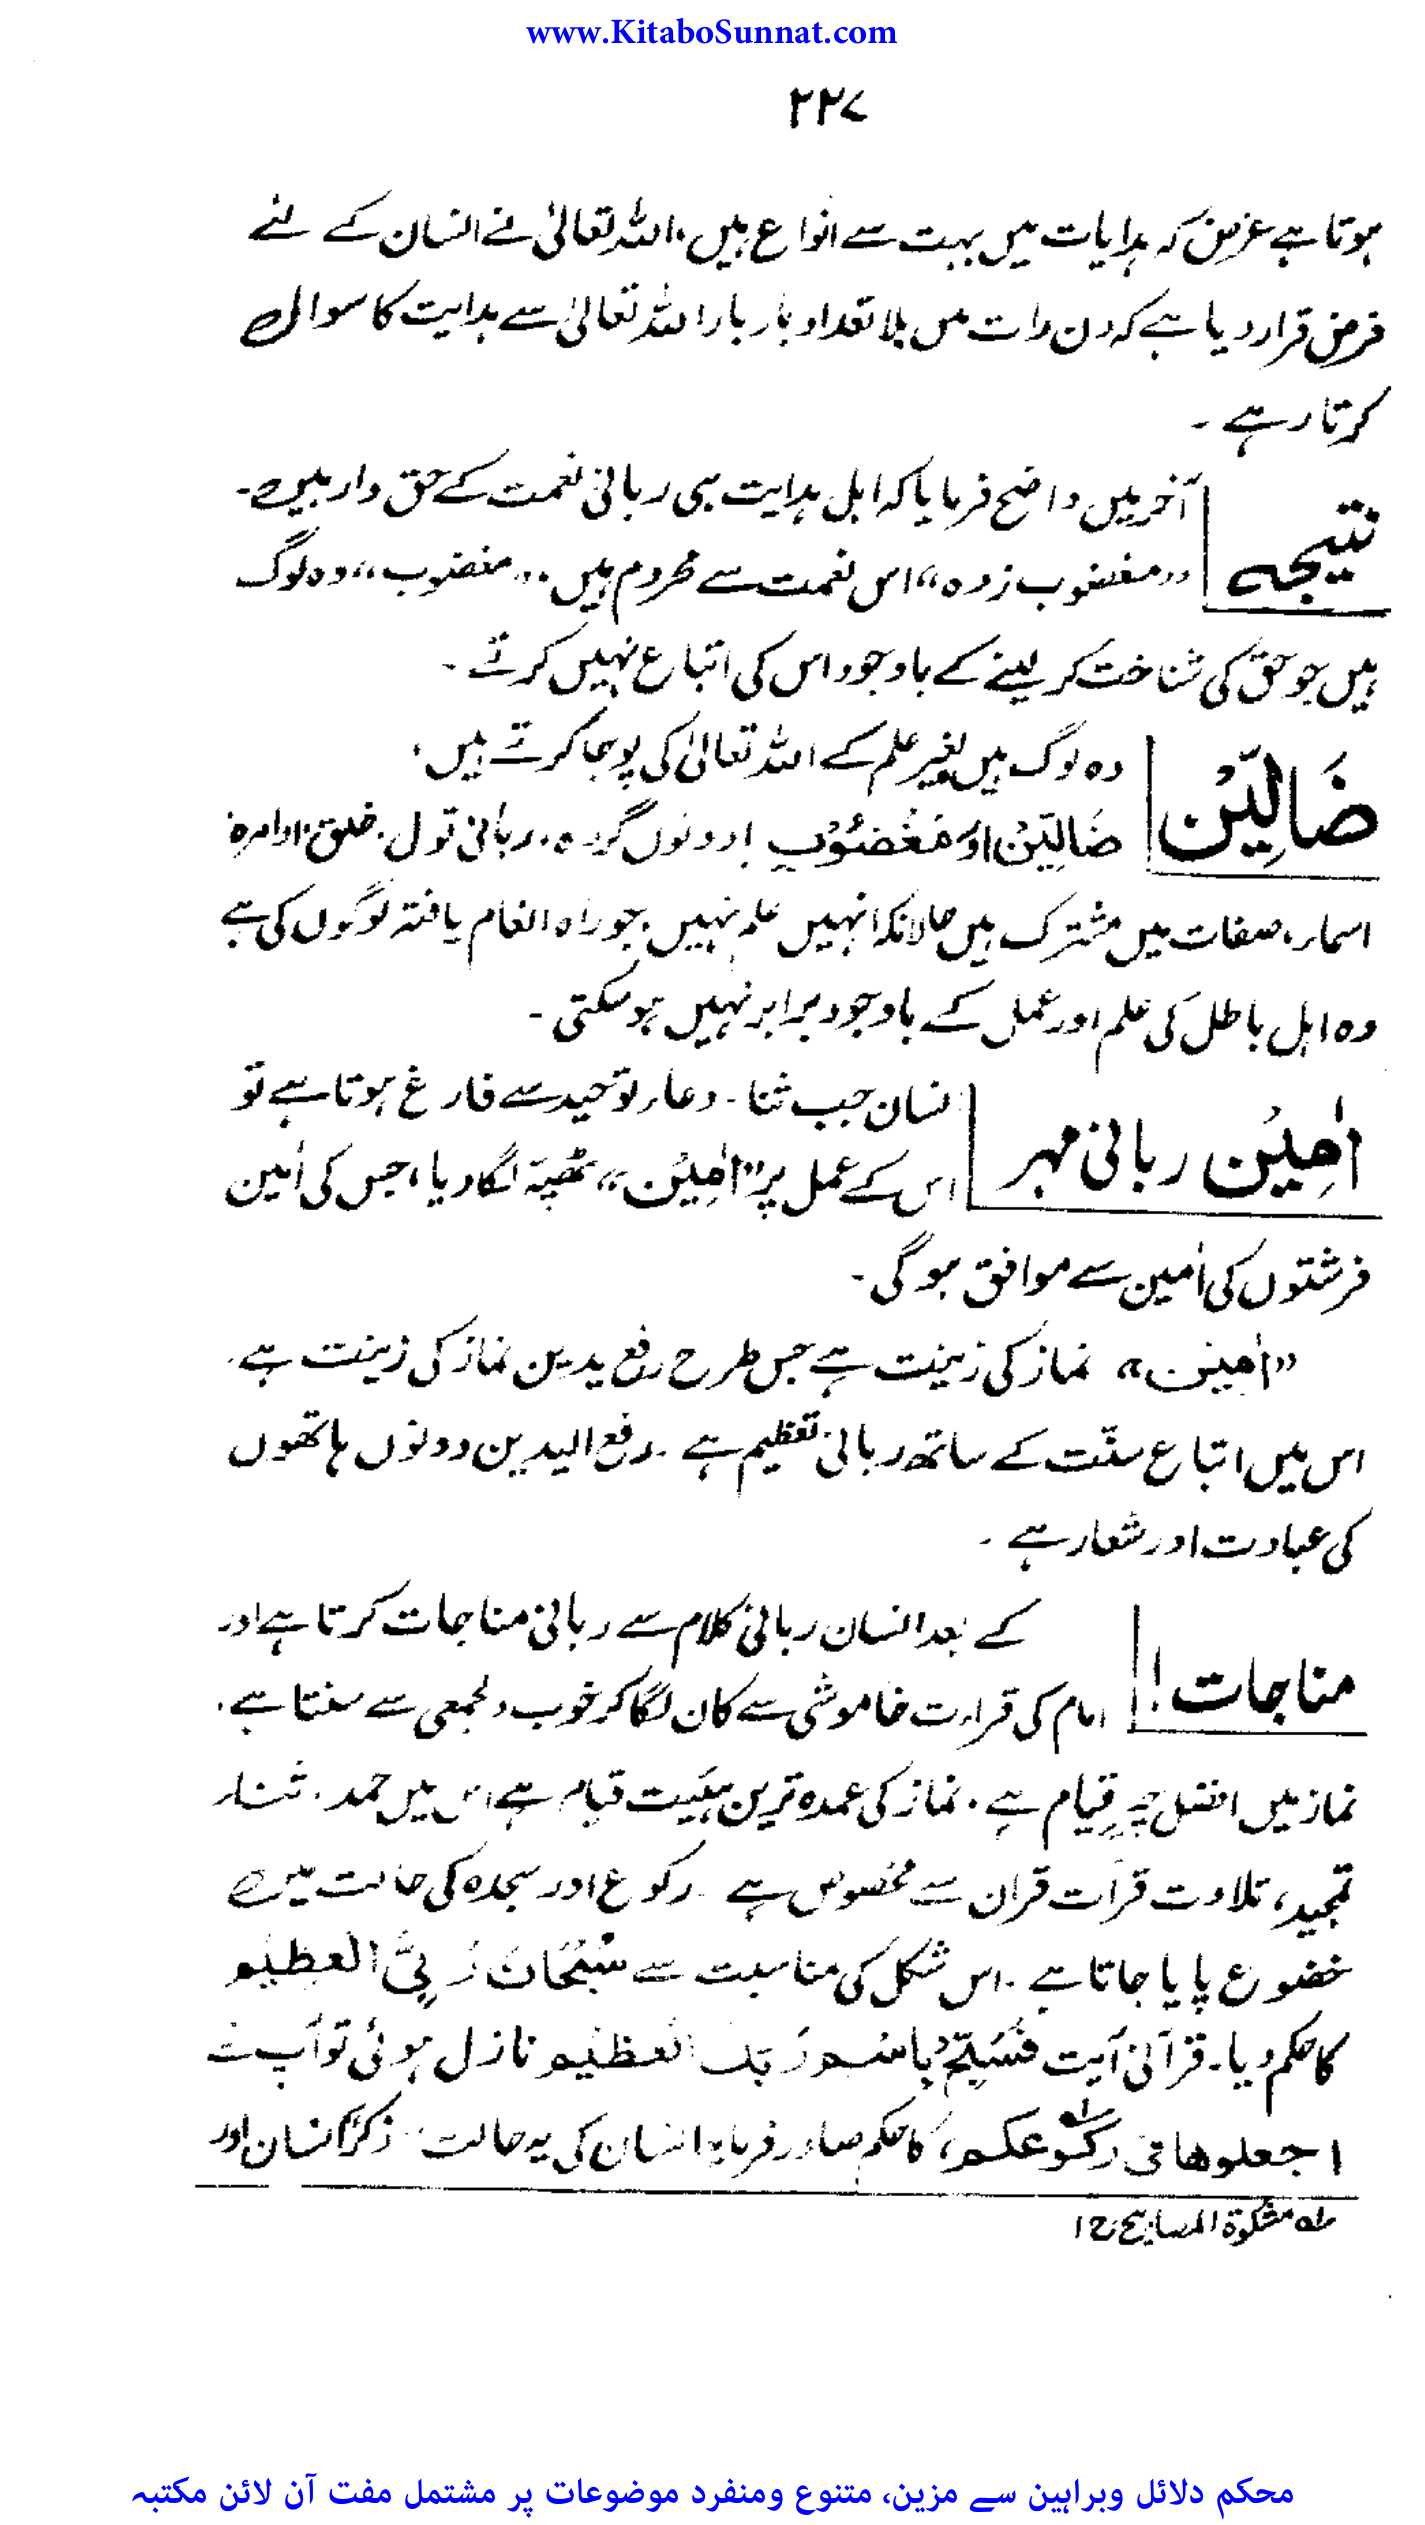 www.KitaboSunnat.com
۲۲۷
ہوتا ہے غرض کہ ہدایات میں بہت سے انواع ہیں، اللہ تعالیٰ نے انسان کے لئے
فرض قرار دیا ہے کہ دن رات میں بلا تعداد بار بار اللہ تعالیٰ سے ہدایت کا سوال
کرتا رہے ۔
نتیجہ
آخر میں واضح فرمایا کہ اہل ہدایت ہی ربانی نعمت کے حق دار ہیں۔
”مغضوب زدہ“ اس نعمت سے محروم ہیں۔ ”مغضوب“ وہ لوگ
ہیں جو حق کی شناخت کر لینے کے باوجود اس کی اتباع نہیں کرتے ۔
ضَالِّیْن
وہ لوگ ہیں بغیر علم کے اللہ تعالیٰ کی پوجا کرتے ہیں،
ضَالِّیْن اور مَغْضُوْب دونوں گروہ، ربانی قول، خلق، اوامر،
اسماء، صفات میں مشترک ہیں حالانکہ انہیں علم نہیں، جو راہ انعام یافتہ لوگوں کی ہے
وہ اہل باطل کی علم اور عمل کے باوجود برابر نہیں ہوسکتی ۔
اٰمِیْن ربانی مہر
انسان جب ثنا ۔ دعاء، توحید سے فارغ ہوتا ہے تو
اس کے عمل پر ”اٰمِیْن“ ٹھپہ لگا دیا، جس کی اٰمین
فرشتوں کی اٰمین سے موافق ہوگی ۔
”اٰمین“ نماز کی زینت ہے جس طرح رفع یدین نماز کی زینت ہے۔
اس میں اتباع سنّت کے ساتھ ربانی تعظیم ہے ۔ رفع الیدین دونوں ہاتھوں
کی عبادت اور شعار ہے ۔
مناجات!
کے بعد انسان ربانی کلام سے ربانی مناجات کرتا ہے اور
امام کی قراءت خاموشی سے کان لگا کر خوب دلجمعی سے سنتا ہے ،
نماز میں افضل چیز قیام ہے ، نماز کی عمدہ ترین ہیئت قیام ہے اس میں حمد، ثناء
تمجید، تلاوت قرآت قرآن سے مخصوص ہے ۔ رکوع اور سجدہ کی حالت میں
خضوع پایا جاتا ہے ۔ اس شکل کی مناسبت سے سُبْحَانَ رَبِّیَ الْعَظِیْمِ
کا حکم دیا ۔ قرآنی آیت فَسَبِّحْ بِاسْمِ رَبِّکَ الْعَظِیْمِ نازل ہوئی تو آپ نے
اجعلوھا فی رکوعکم، کا حکم صادر فرمایا انسان کی یہ حالت ذکرً انسان اور
لہ مشکوٰة المصابیح ج ۱
محکم دلائل وبراہین سے مزین، متنوع ومنفرد موضوعات پر مشتمل مفت آن لائن مکتبہ